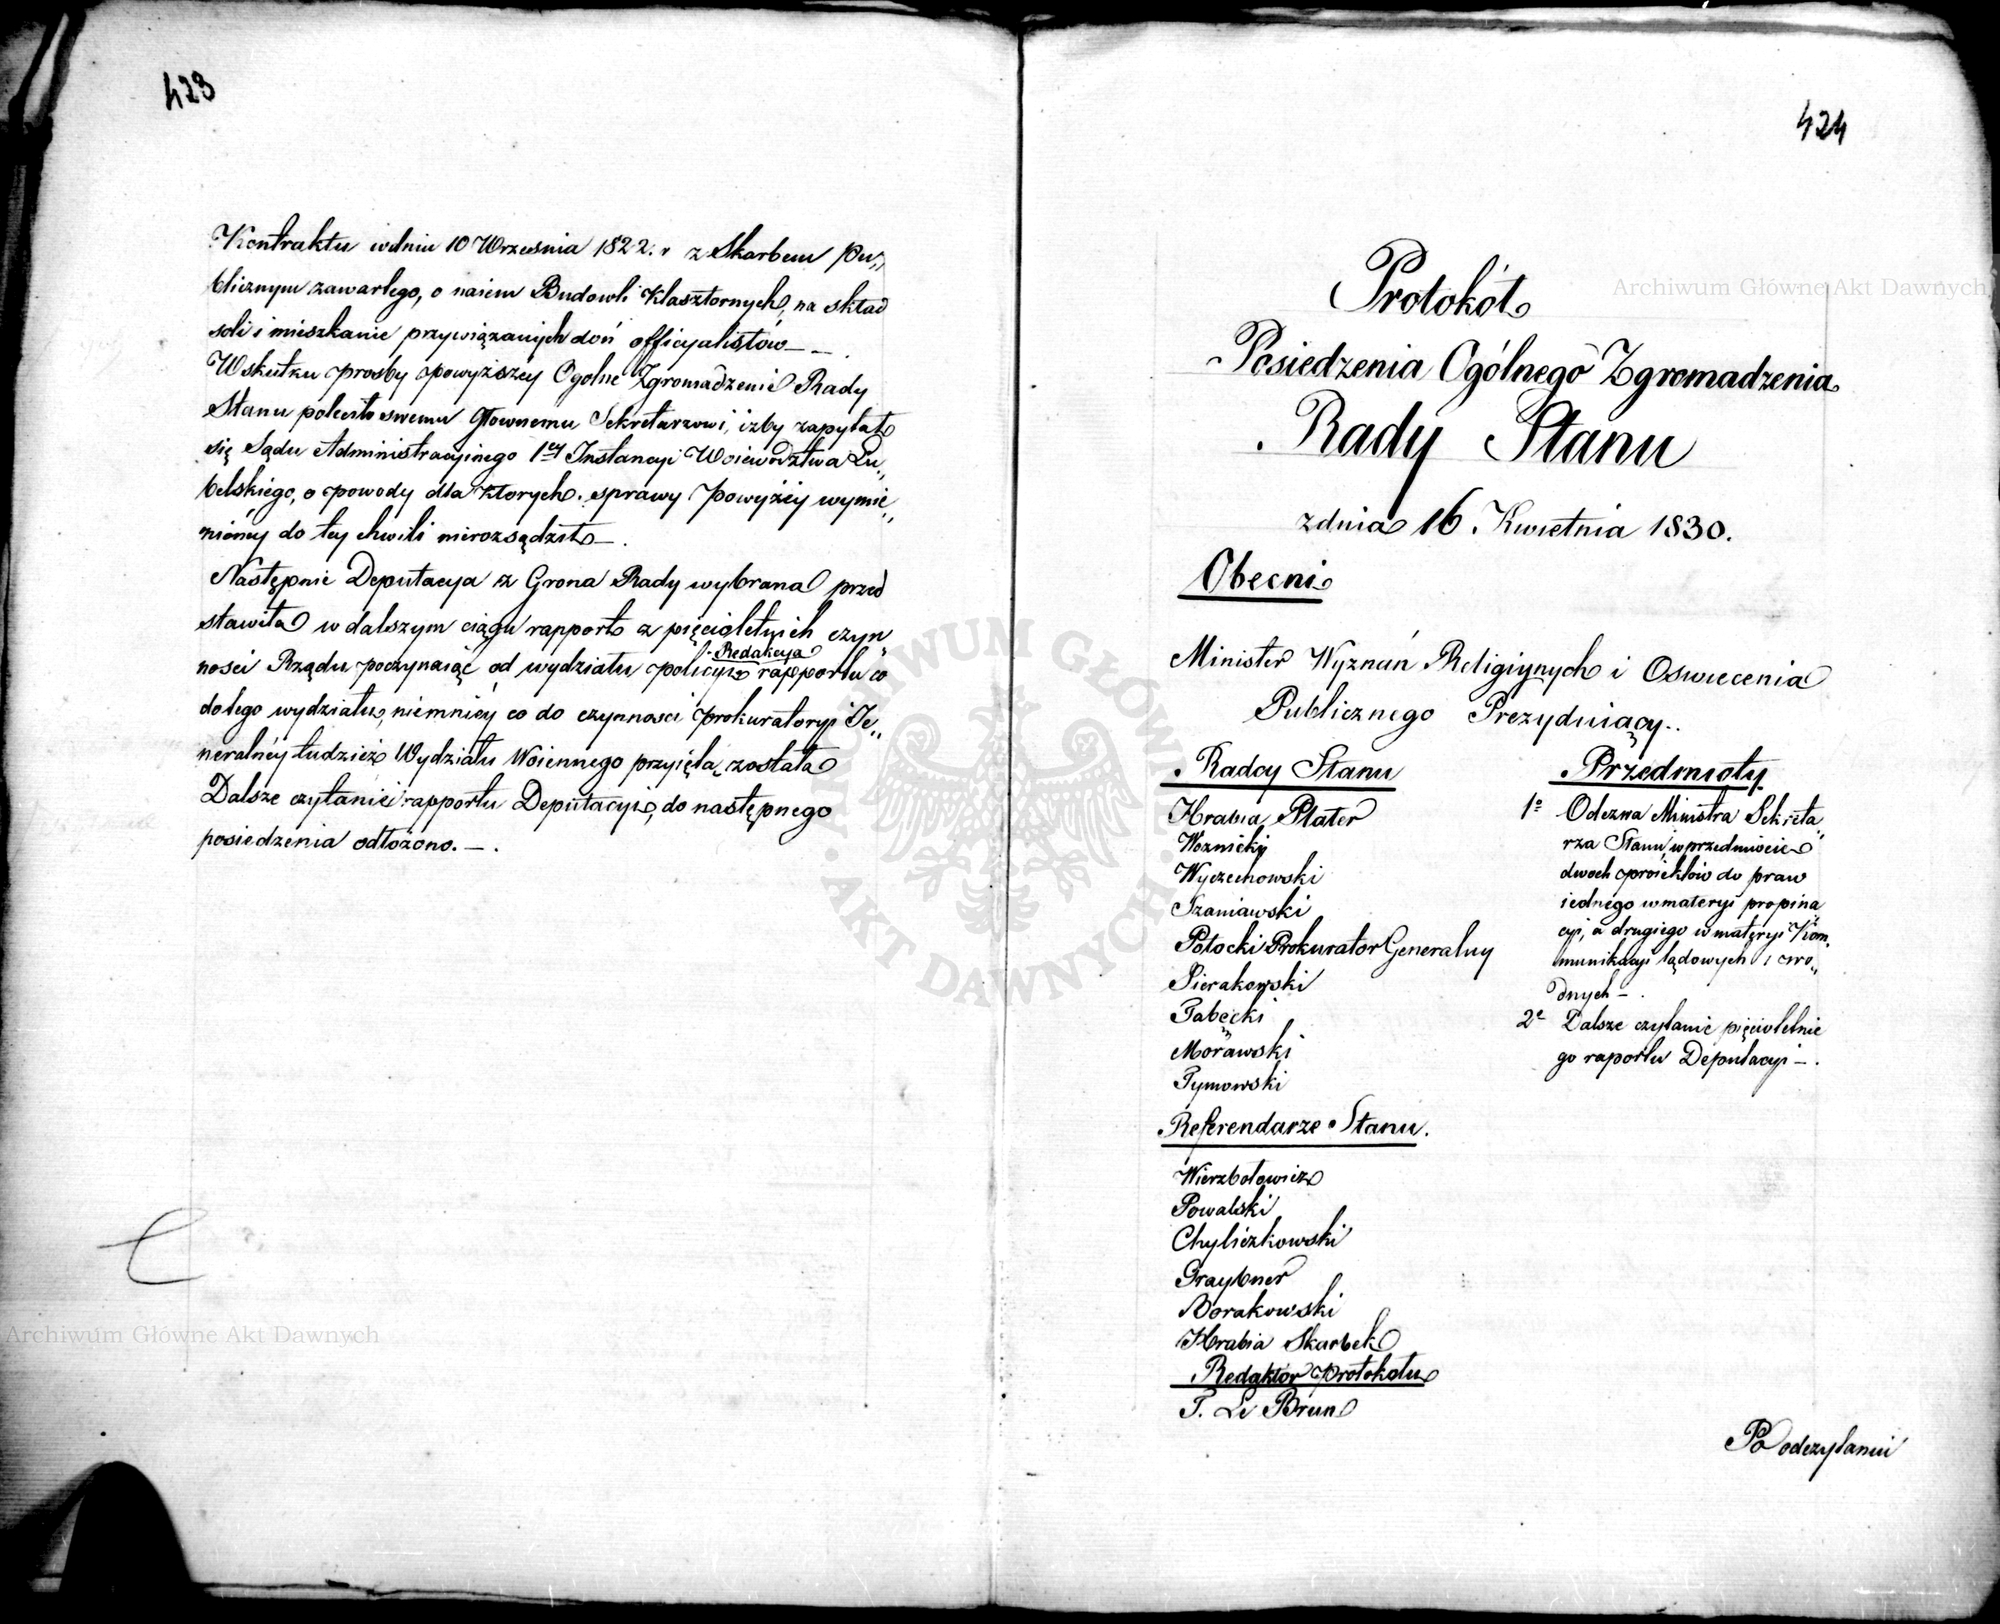 423
Kontraktu w dniu 10 Września 1822. r z Skarbem Pu„
blicznym zawartego, o naiem Budowli Klasztornych, na skład
soli i mieszkanie przywiązanych doń officyalistów —
W skutku prosby powyższey Ogolne Zgromadzenie Rady
Stanu poleciło swemu Głownemu Sekretarzowi, iżby zapytał
się Sądu Administracyinego 1ey Instancyi Woiewodztwa Lu„
belskiego, o powody dla ktorych sprawy powyżey wymie„
nioney do tey chwili nierozsądził —.
Następnie Deputacya z Grona Rady wybrana przed
stawiła w dalszym ciągu rapport z pięcioletnich czyn„
Redakcya
ności Rządu poczynaiąc od wydziału policyi rapportu co
do tego wydziału, niemniey co do czynności Prokuratoryi Je„
neralney tudzież Wydziału Woiennego przyięta została
Dalsze czytanie rapportu Deputacyi, do następnego
posiedzenia odłożono. — .
Archiwum Główne Akt Dawnych
424
Protokół
Posiedzenia Ogólnego Zgromadzenia
Rady Stanu
z dnia 16 Kwietnia 1830.
Obecni
Minister Wyznań Religiynych i Oswiecenia
Publicznego Prezyduiący.
Radcy Stanu
Hrabia Plater
Woznicki
Wyczechowski
Szaniawski
Potocki Prokurator Generalny
Sierakowski
Tabęcki
Morawski
Tymowski
Referendarze Stanu.
Wierzbołowicz
Powalski
Chyliczkowski
Graybner
Borakowski
Hrabia Skarbek
Redaktor protokołu
T. Le Brun
Przedmioty
1o Odezwa Ministra Sekreta„
rza Stanu w przedmiocie
dwoch proiektów do praw
iednego w materyi propina
cyi, a drugiego w materyi Kom„
munikacyi lądowych i wo„
dnych — .
2o Dalsze czytanie pięcioletnie
go raportu Deputacyi — .
Po odczytaniu
Archiwum Główne Akt Dawnych
ARCHIWUM GŁÓWNE AKT DAWNYCH